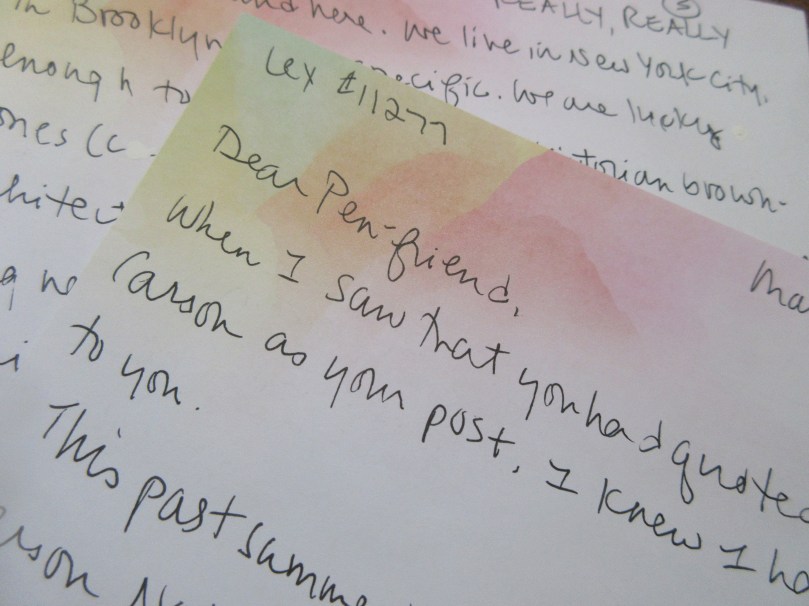 REALLY, REALLY
5
here. We live in New York City.
in Brooklyn
specific. We are lucky
enough to
Victorian brown-
ones
Lex #11277
Ma
Dear Pen-friend,
When I saw that you had quoted
Carson as your post, I knew I ha
to you.
This past summe